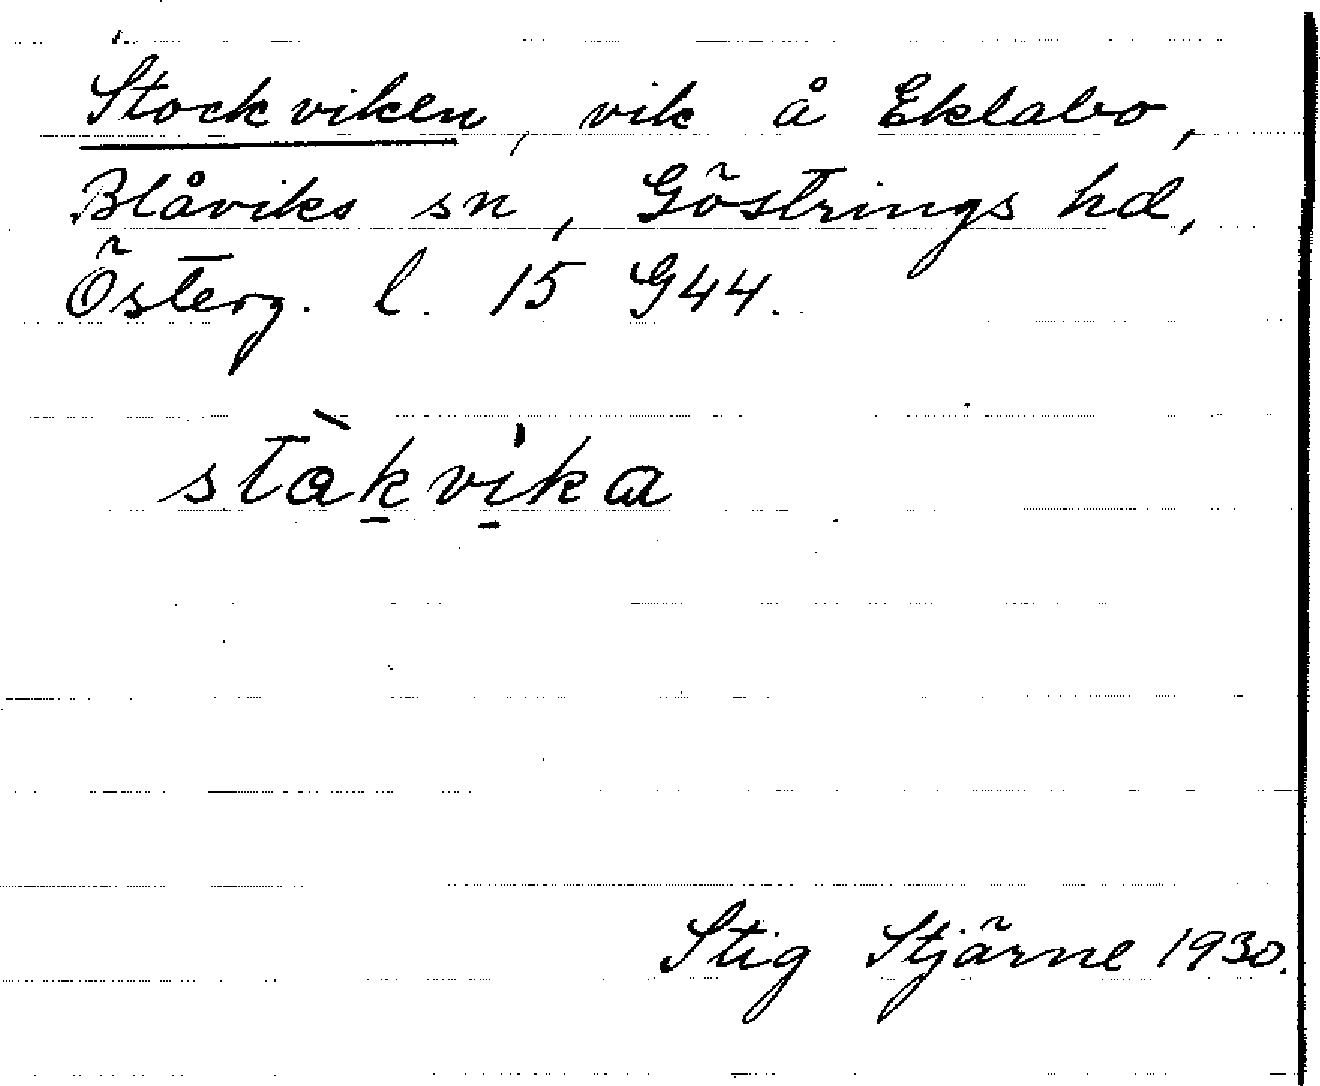 Stockviken, vik å Eklabo,
Blåviks sn, Göstrings hd,
Österg. l. 15 G44.
stàkvi̱ka
Stig Stjärne 1930.